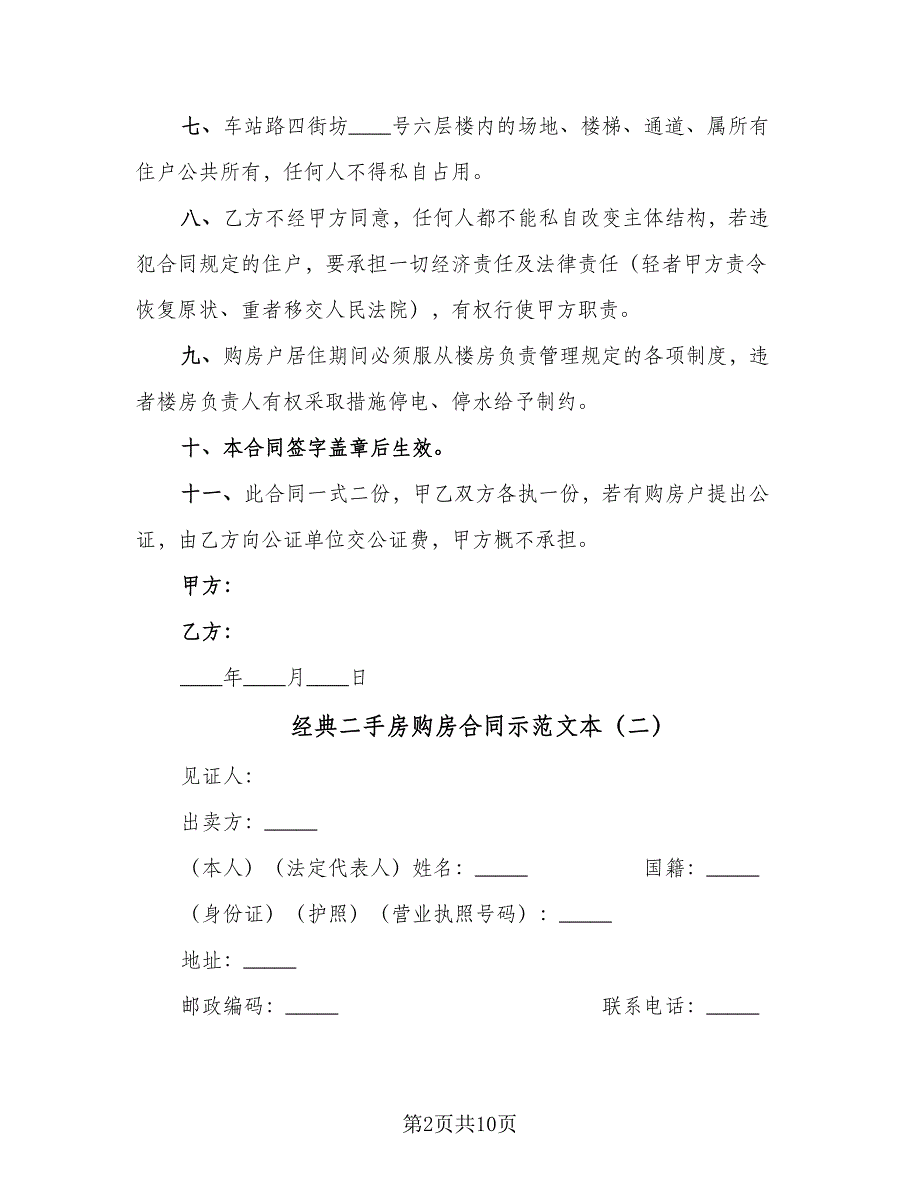 七、车站路四街坊____号六层楼内的场地、楼梯、通道、属所有
住户公共所有，任何人不得私自占用。
八、乙方不经甲方同意，任何人都不能私自改变主体结构，若违
犯合同规定的住户，要承担一切经济责任及法律责任（轻者甲方责令
恢复原状、重者移交人民法院），有权行使甲方职责。
九、购房户居住期间必须服从楼房负责管理规定的各项制度，违
者楼房负责人有权采取措施停电、停水给予制约。
十、本合同签字盖章后生效。
十一、此合同一式二份，甲乙双方各执一份，若有购房户提出公
证，由乙方向公证单位交公证费，甲方概不承担。
甲方：
乙方：
____年____月____日
经典二手房购房合同示范文本（二）
见证人：
出卖方：_____
（本人）（法定代表人）姓名：_____ 国籍：_____
（身份证）（护照）（营业执照号码）：_____
地址：_____
邮政编码：_____ 联系电话：_____
第2页共10页